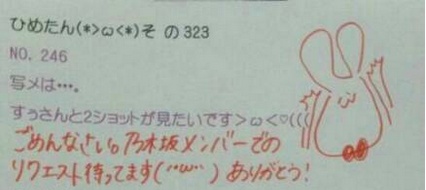 ひめたん(*>ω<*)そ の323
NO. 246
写メは…。
すぅさんと2ショットが見たいです>ω<♡(((
ごめんなさい。乃木坂メンバーでの
リクエスト待ってます(¨ω¨) ありがとう!